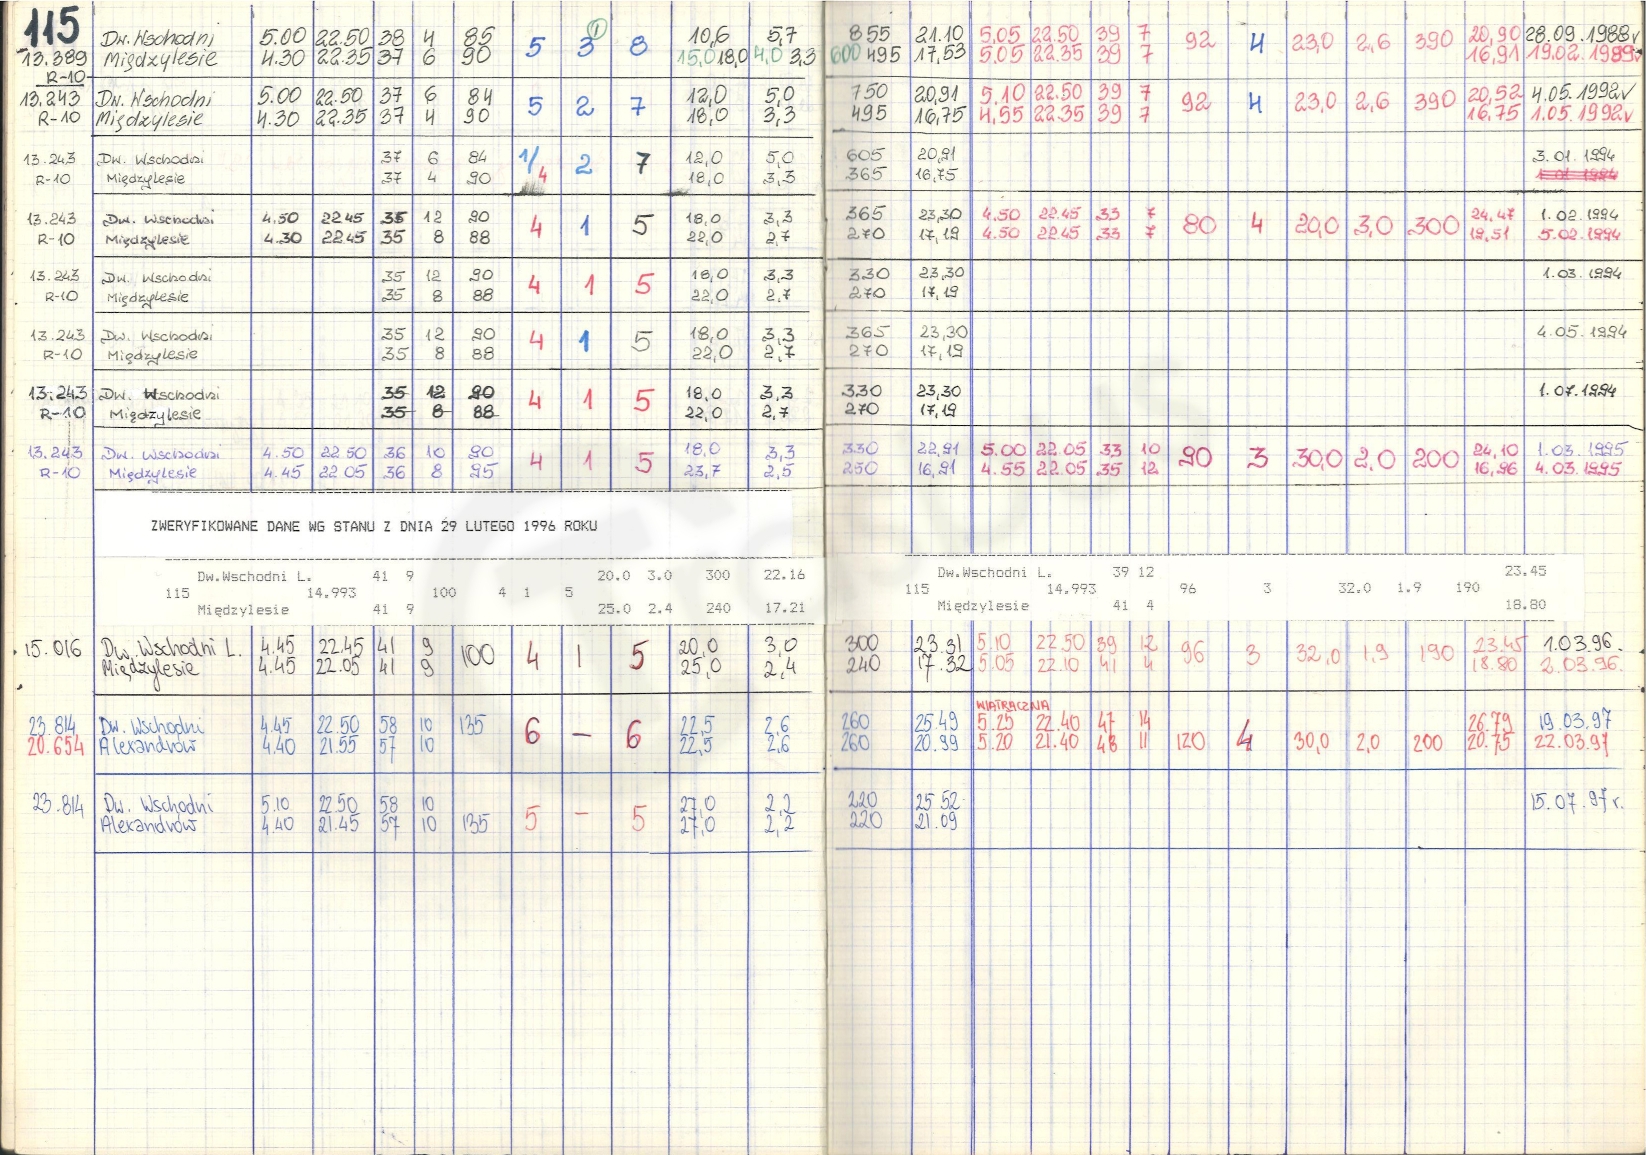 115 Dw. Wschodni 5.00 22.50 38 4 85 5 3 ① 8 10,6 5,7 855 21.10 5,05 22.50 39 7 92 4 23,0 2,6 390 20,90 28.09.1988r
13.389 Międzylesie 4.30 22.35 37 6 90 15,0 18,0 4,0 3,3 600 495 17,53 5,05 22.35 39 7 16,91 19.02.1989r
R-10
13.243 Dw. Wschodni 5.00 22.50 37 6 84 5 2 7 12,0 5,0 750 20,91 5,10 22.50 39 7 92 4 23,0 2,6 390 20,52 4.05.1992r
R-10 Międzylesie 4.30 22.35 37 4 90 18,0 3,3 495 16,75 4,55 22.35 39 7 16,75 1.05.1992r
13.243 Dw. Wschodni 37 6 84 1/4 2 7 12,0 5,0 605 20,91 3.01.1994
R-10 Międzylesie 37 4 90 18,0 3,3 365 16,75
13.243 Dw. Wschodni 4.50 22.45 35 12 90 4 1 5 18,0 3,3 365 23,30 4.50 22.45 33 7 80 4 20,0 3,0 300 24,47 1.02.1994
R-10 Międzylesie 4.30 22.45 35 8 88 22,0 2,7 270 17,19 4.50 22.45 33 7 19,51 5.02.1994
13.243 Dw. Wschodni 35 12 90 4 1 5 18,0 3,3 330 23,30 1.03.1994
R-10 Międzylesie 35 8 88 22,0 2,7 270 17,19
13.243 Dw. Wschodni 35 12 90 4 1 5 18,0 3,3 365 23,30 4.05.1994
R-10 Międzylesie 35 8 88 22,0 2,7 270 17,19
13.243 Dw. Wschodni 35 12 90 4 1 5 18,0 3,3 330 23,30 1.07.1994
R-10 Międzylesie 35 8 88 22,0 2,7 270 17,19
13.243 Dw. Wschodni 4.50 22.50 36 10 90 4 1 5 18,0 3,3 330 22,91 5.00 22.05 33 10 90 3 30,0 2,0 200 24,10 1.03.1995
R-10 Międzylesie 4.45 22.05 36 8 95 23,7 2,5 250 16,91 4.55 22.05 35 12 16,96 4.03.1995
ZWERYFIKOWANE DANE WG STANU Z DNIA 29 LUTEGO 1996 ROKU
Dw.Wschodni L. 41 9 20.0 3.0 300 22.16 Dw.Wschodni L. 39 12 23.45
115 14.993 100 4 1 5 115 14.993 96 3 32.0 1.9 190
Międzylesie 41 9 25.0 2.4 240 17.21 Międzylesie 41 4 18.80
15.016 Dw. Wschodni L. 4.45 22.45 41 9 100 4 1 5 20,0 3,0 300 23.31 5.10 22.50 39 12 96 3 32,0 1,9 190 23.45 1.03.96.
Międzylesie 4.45 22.05 41 9 25,0 2,4 240 17.32 5.05 22.10 41 4 18.80 2.03.96.
WIATRACZNA
23.814 Dw. Wschodni 4.45 22.50 58 10 135 6 – 6 22,5 2,6 260 25.49 5.25 22.40 47 14 120 4 30,0 2,0 200 26.79 19.03.97
20.654 Alexandrów 4.40 21.55 57 10 22,5 2,6 260 20.99 5.20 21.40 48 11 20.75 22.03.97
23.814 Dw. Wschodni 5.10 22.50 58 10 5 – 5 27,0 2,2 220 25.52 15.07.97r.
Alexandrów 4.40 21.45 57 10 135 27,0 2,2 220 21.09